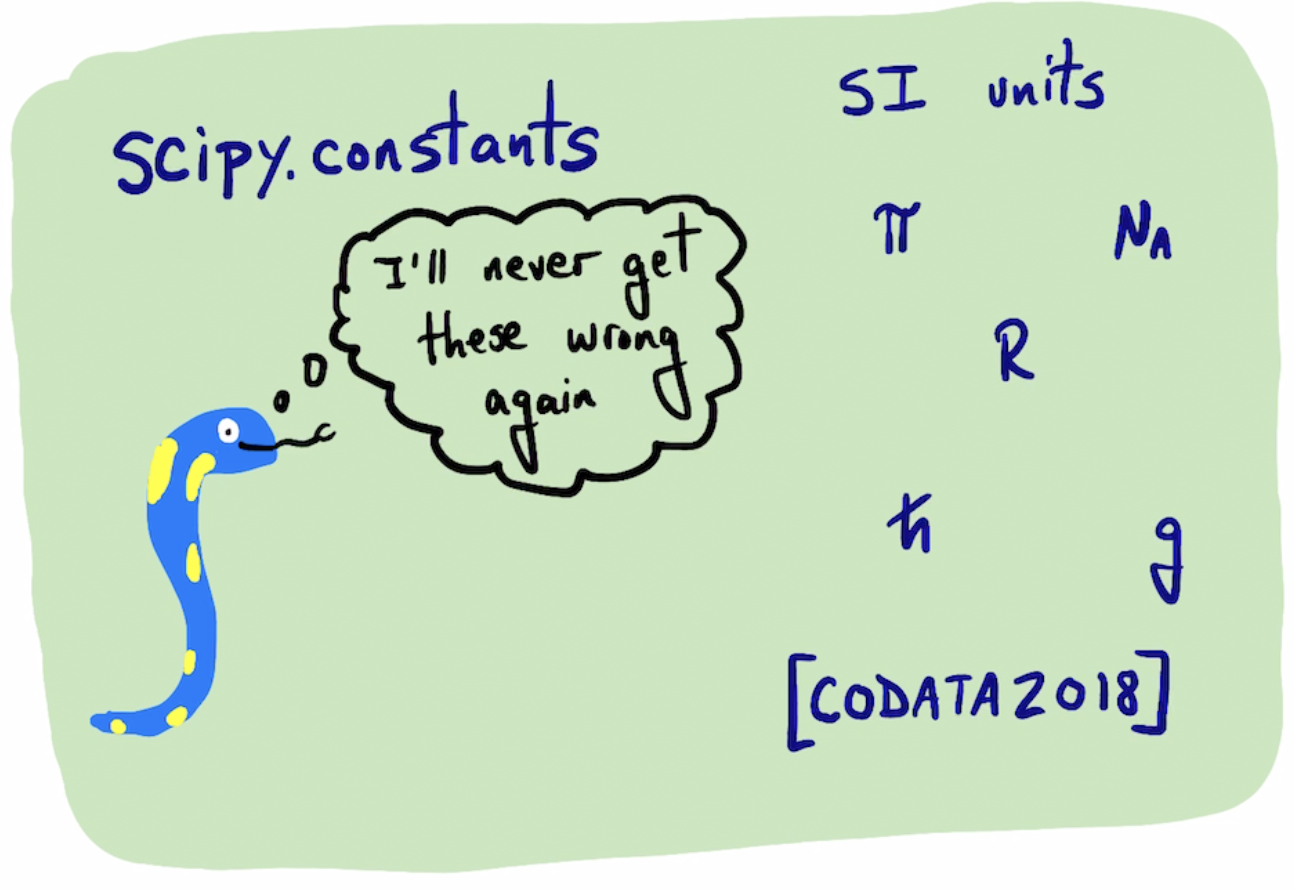 scipy.constants
I'll never get
these wrong
again
SI units
π N_A
R
ħ g
[CODATA2018]